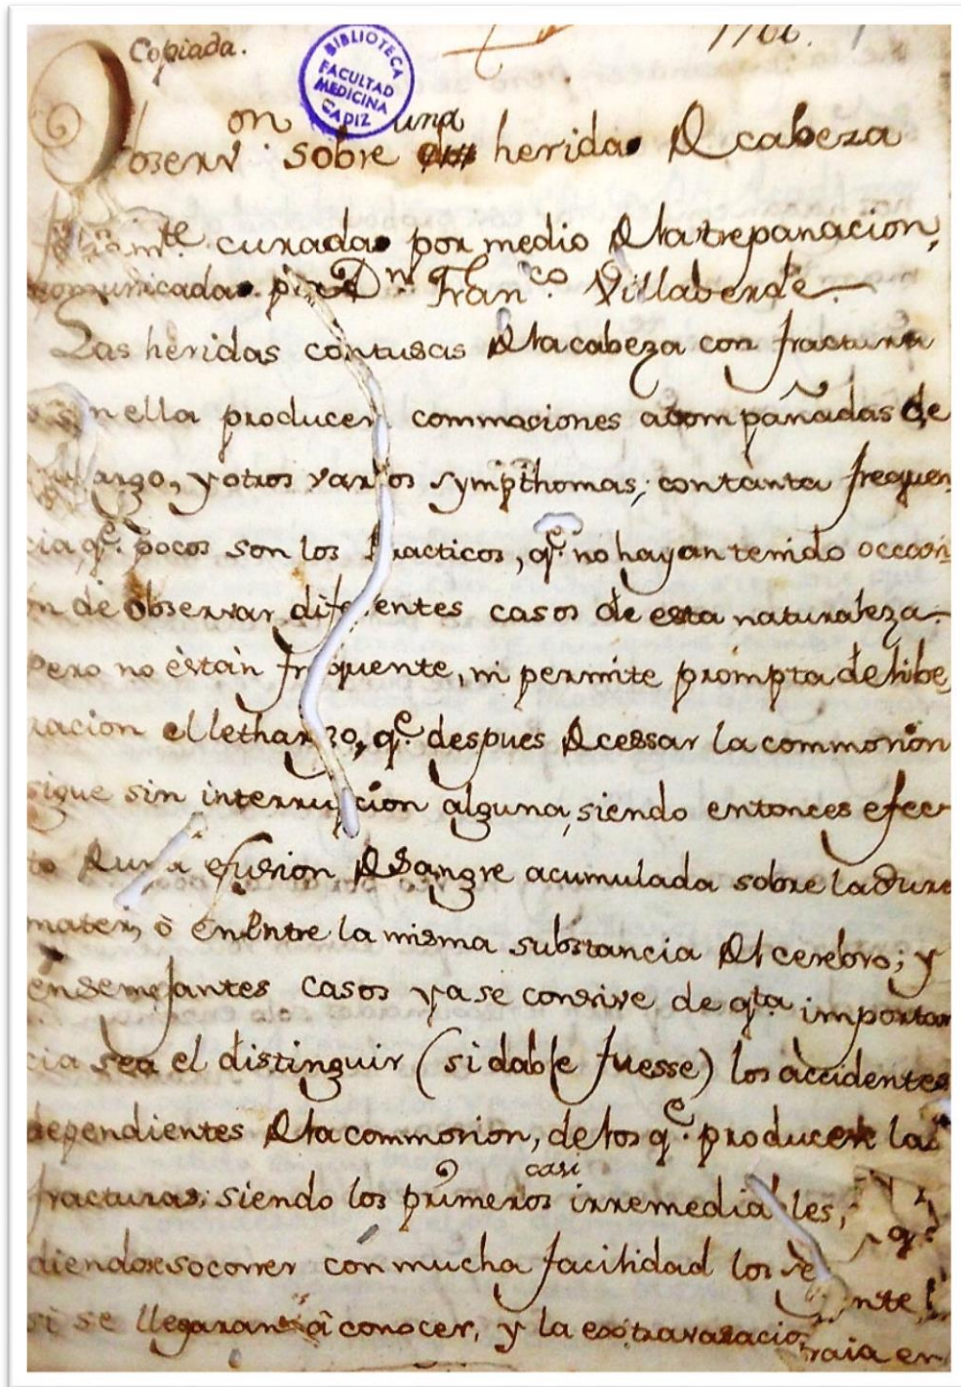 Copiada.
BIBLIOTECA
FACULTAD
MEDICINA
CADIZ
Observon sobre una herida de cabeza
curada por medio de la trepanacion,
comunicada por Dn. Franco. Villaberde.
Las heridas contusas de la cabeza con fractura
o sin ella producen commociones acompañadas de
letargo, y otros varios sympthomas, con tanta frequen
cia, qe. pocos son los Practicos, qe. no hayan tenido occasi
on de observar diferentes casos de esta naturaleza.
Pero no es tàn frequente, ni permite prompta delibe
racion el lethargo, qe. despues de cessar la commosion
sigue sin interrupcion alguna, siendo entonces efec
to de una efusion de sangre acumulada sobre la dura
mater, ò en entre la misma substancia del cerebro; y
en semejantes casos ya se concive de qta. importan
cia sea el distinguir (si dable fuesse) los accidentes
dependientes de la commosion, de los qe. producen las
fracturas; siendo los primeros casi irremediables,
diendose socorrer con mucha facilidad los
si se llegaran à conocer, y la extravasacion